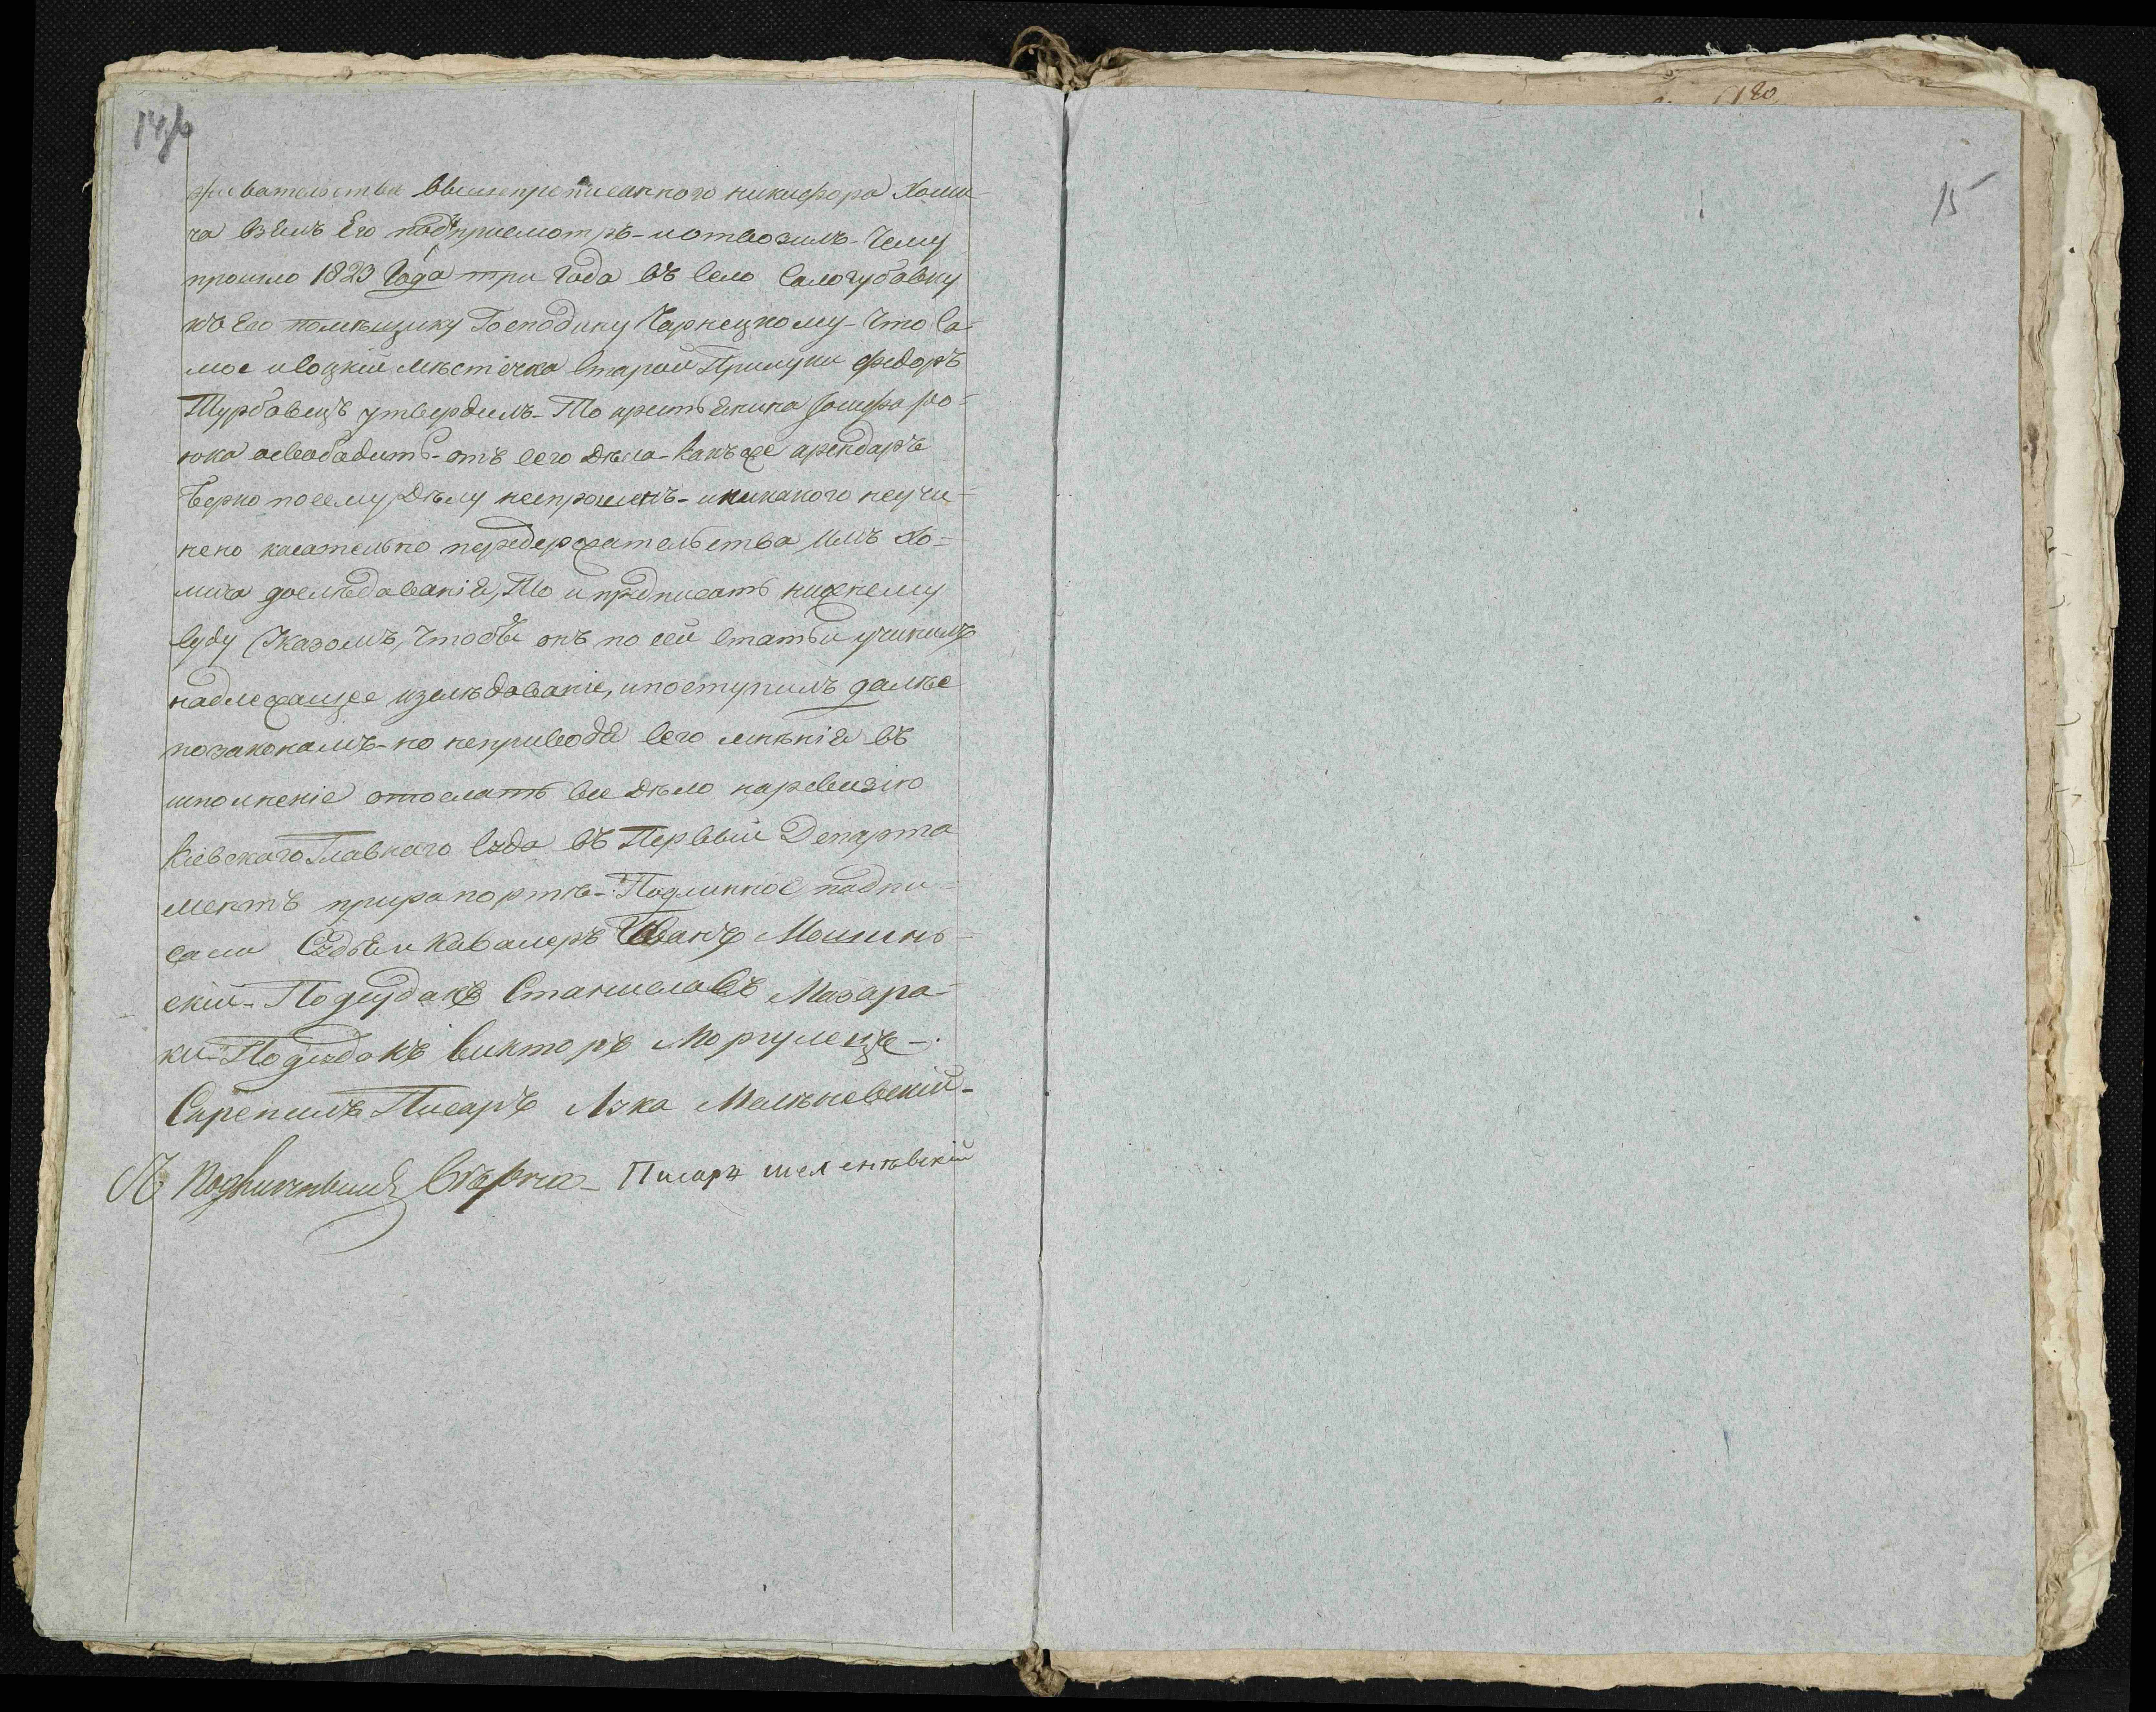 14 об
живательства вышепрописанного никифора Хоми-
ча взялъ Его подъ присмотръ - и отвозилъ - Чему
прошло 1823 Года три года въ село Салогубовку
къ Его помѣщику Господину Чарнецкому - Что Са-
мое и Соцкій мѣстечка Старой Прилуки Федоръ
Турбовецъ утвердилъ - То крестьянина
освабадить - отъ сего дѣла - Какъ же арендаръ
Берко по сему Дѣлу неспрошенъ - и никакого неучи=
нено касательно передержательства имъ Хо=
мича дослѣдованія, То и предписать нижнему
Суду Указомъ, Чтобы онъ по сей статьи учинилъ
надлежащее изслѣдованіе, и поступилъ далѣе
по законамъ - но неприводя Сего мнѣнія въ
исполненіе отослать все дѣло наревизію
Кіевскаго Главнаго Суда въ Первый Департа
ментъ прирапортѣ - Подлинное подпи=
сали Судья и Кавалеръ Иванъ Мошинь=
скій - Подсудокъ Станиславъ Мазара-
ки - Подсудокъ Викторъ Моргулецъ -
Скрепилъ Писаръ Лука Мелѣневскій -
Съ Подлиннымъ Верно - Писаръ Мелѣневскій
15